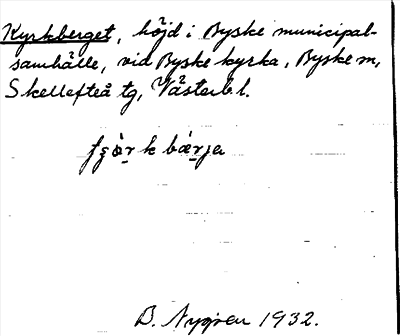 Kyrkberget, höjd i Byske municipal-
samhälle, vid Byske kyrka, Byske m,
Skellefteå tg, Västerb l.
B. Nygren 1932.